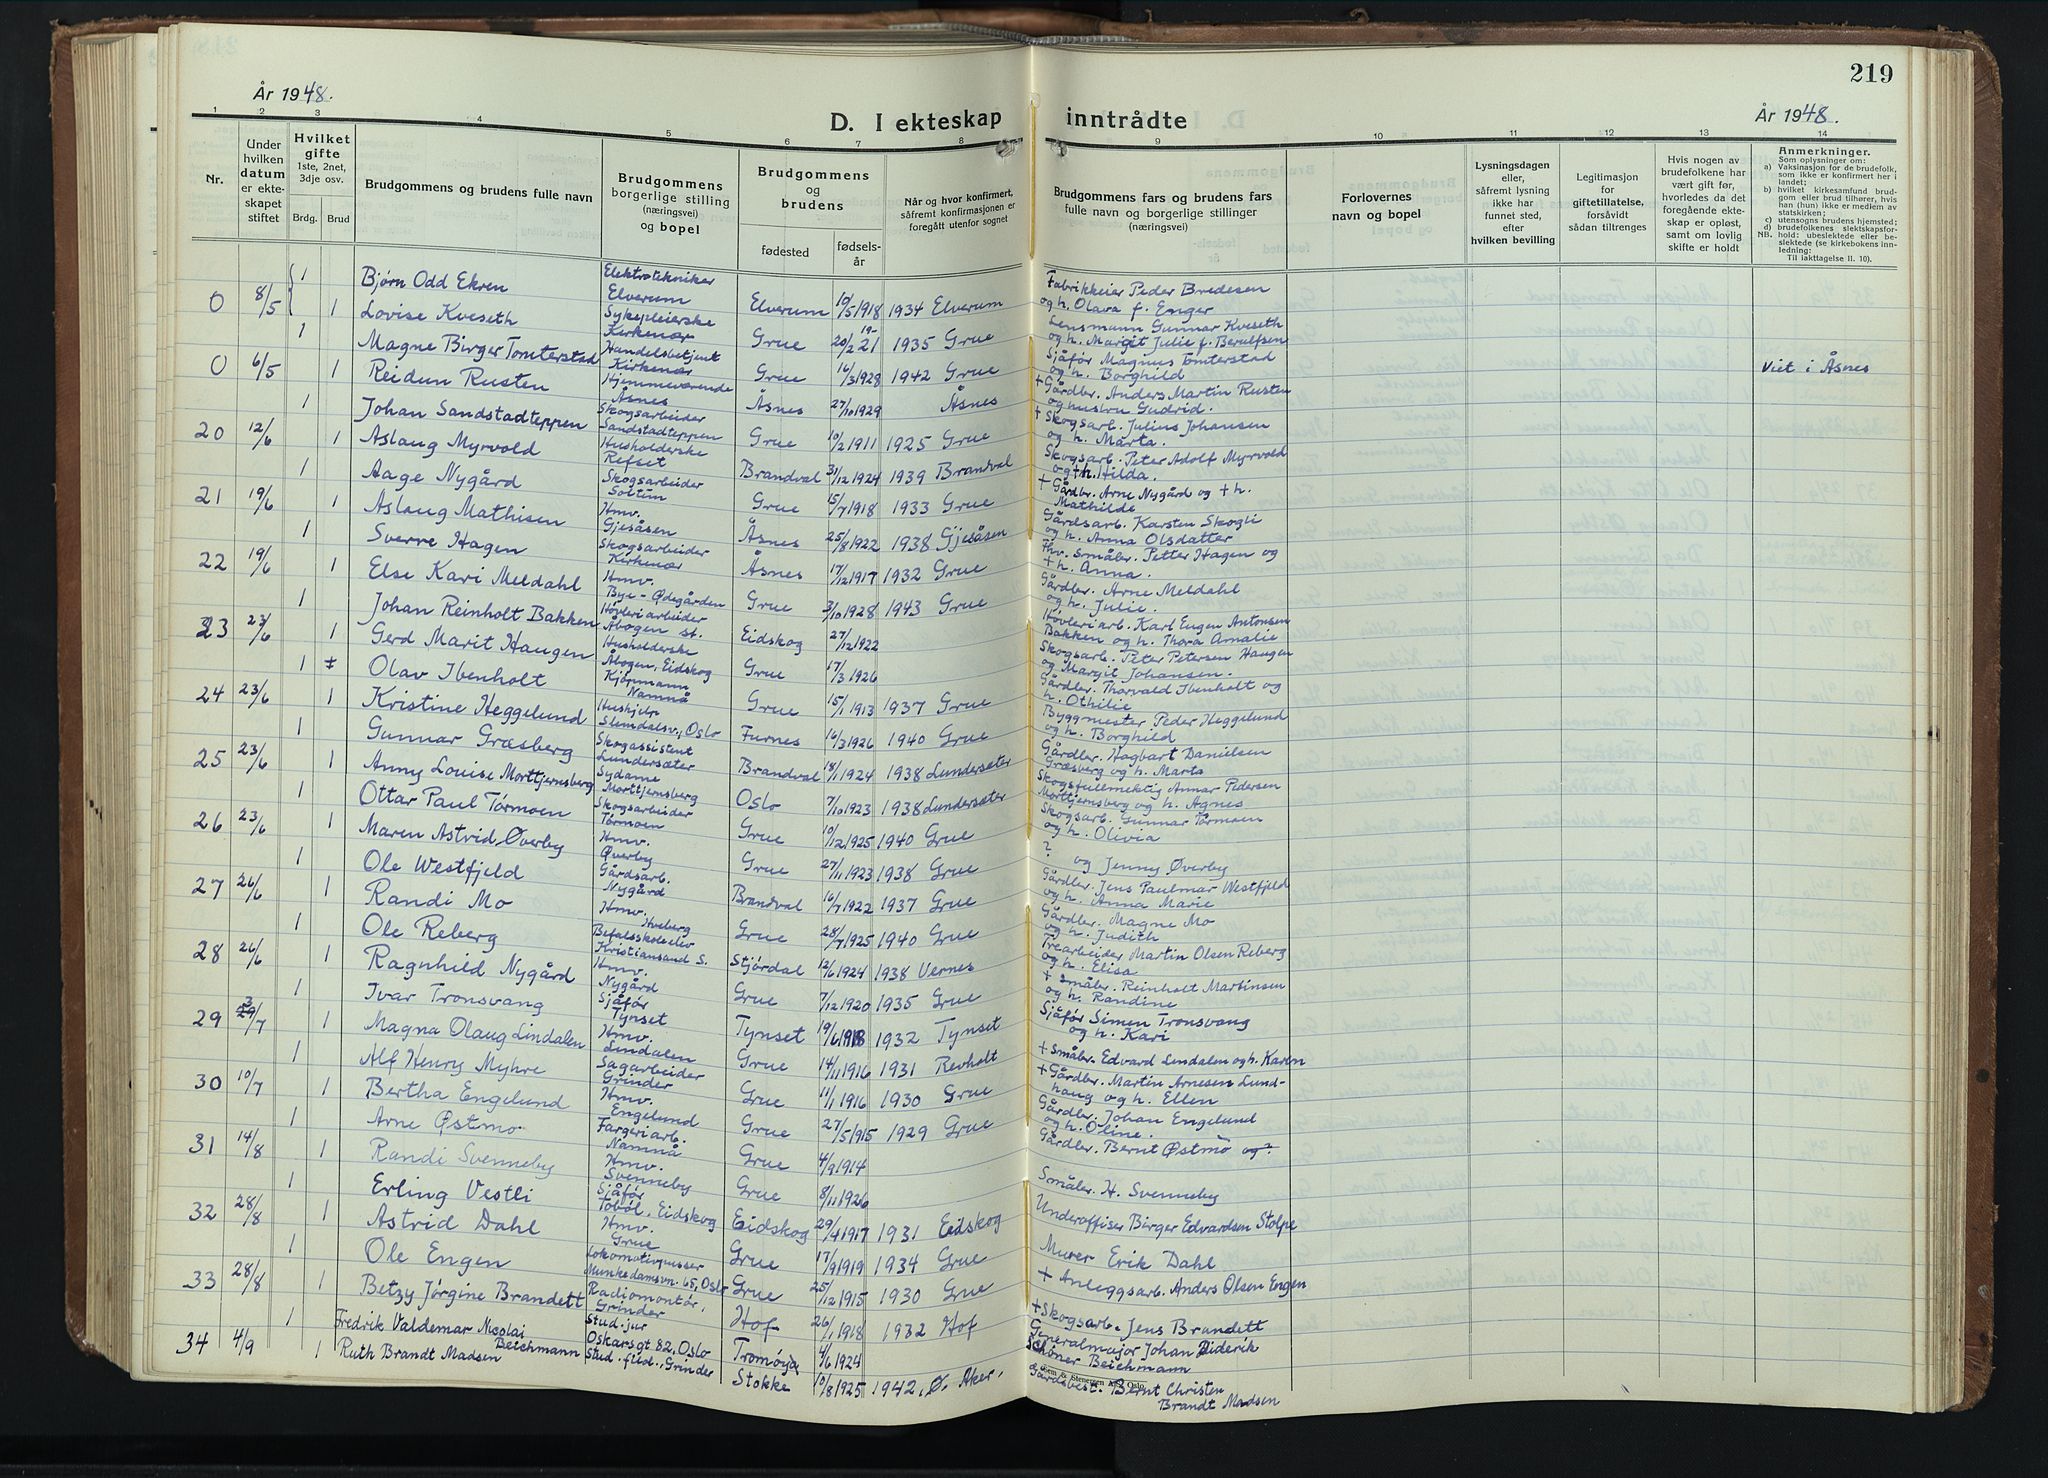 219
År 1948.
År 1948.
D. I ekteskap inntrådte
1 2 3 4 5 6 7 8 9 10 11 12 13 14
Nr.
Under hvilken datum er ekteskapet stiftet
Hvilket gifte 1ste, 2net, 3dje osv.
Brdg. Brud
Brudgommens og brudens fulle navn
Brudgommens borgerlige stilling (næringsvei) og bopel
Brudgommens og brudens
fødested
fødselsår
Når og hvor konfirmert, såfremt konfirmasjonen er foregått utenfor sognet
Brudgommens fars og brudens fars fulle navn og borgerlige stillinger (næringsvei)
Forlovernes navn og bopel
Lysningsdagen eller, såfremt lysning ikke har funnet sted, efter hvilken bevilling
Legitimasjon for giftetillatelse, forsåvidt sådan tiltrenges
Hvis nogen av brudefolkene har vært gift før, hvorledes da det foregående ekteskap er opløst, samt om lovlig skifte er holdt
Anmerkninger.
Som oplysninger om:
a) Vaksinasjon for de brudefolk, som ikke er konfirmert her i landet;
b) hvilket kirkesamfund brudgom eller brud tilhører, hvis han (hun) ikke er medlem av statskirken;
c) utensogns brudens hjemsted;
d) brudefolkenes slektskapsforhold: ubeslektede eller beslektede (se kirkebokens innledning:
NB.
Til iakttagelse II. 10).
0 8/5 1 Bjørn Odd Ekren Elektrotekniker Elverum Elverum 10/5 1918 1934 Elverum Fabrikkeier Peder Bredesen og h. Olava f. Enger
1 Lovise Kveseth Sykepleierske Kirkenær Grue 20/2 1921 1935 Grue Lensmann Gunnar Kveseth og h. Margit Julie f. Berulfsen
0 6/5 1 Magne Birger Tomterstad Handelsbetjent Kirkenær Grue 16/3 1928 1942 Grue Sjåfør Magnus Tomterstad og h. Borghild Viet i Åsnes
1 Reidun Rusten Hjemmeværende Åsnes Åsnes 27/10 1929 Åsnes + Gårdbr. Anders Martin Rusten og hustru Gudrid.
20 12/6 1 Johan Sandstadteppen Skogsarbeider Sandstadteppen Grue 10/2 1911 1925 Grue + Skogsarb. Julius Johansen og h. Marta.
1 Aslaug Myrvold Husholderske Refset Brandval 31/12 1924 1939 Brandval Skogsarb. Peter Adolf Myrvold og + h. Hilda.
21 19/6 1 Aage Nygård Skogsarbeider Soltun Grue 15/7 1918 1933 Grue + Gårdbr. Arne Nygård og + h. Mathilde
1 Aslaug Mathisen Hmv. Gjesåsen Åsnes 25/8 1922 1938 Gjesåsen Gårdsarb. Karsten Skogli og h. Anna Olsdatter
22 19/6 1 Sverre Hagen Skogsarbeider Kirkenær Åsnes 17/12 1917 1932 Grue Fhv. småbr. Petter Hagen og + h. Anna.
1 Else Kari Meldahl Hmv. Bye - Ødegården Grue 3/10 1928 1943 Grue Gårdbr. Arne Meldahl og h. Julie.
23 23/6 1 Johan Reinholt Bakken Høvleriarbeider Åbogen st. Eidskog 27/12 1922 Høvleriarb. Karl Eugen Antonsen Bakken og h. Thora Amalie
1 Gerd Marit Haugen Husholderske Åbogen, Eidskog Grue 17/3 1926 Skogsarb. Peter Petersen Haugen og Margit Johansen.
24 23/6 1 Olav Ibenholt Kjøpmann Namnå Grue 15/1 1913 1937 Grue Gårdbr. Thorvald Ibenholt og h. Othilie
1 Kristine Heggelund Hushjelp Slemdalsv., Oslo Furnes 16/3 1926 1940 Grue Byggmester Peder Heggelund og h. Borghild
25 23/6 1 Gunnar Græsberg Skogassistent Lundersæter Brandval 18/1 1924 1938 Lundersæter Gårdbr. Hagbart Danielsen Græsberg og h. Marta
1 Anny Louise Morttjernsberg Sydame Morttjernsberg Oslo 7/10 1923 1938 Lundersæter Skogsfullmektig Annar Pedersen Morttjernsberg og h. Agnes
26 23/6 1 Ottar Paul Tørmoen Skogsarbeider Tørmoen Grue 10/12 1925 1940 Grue Skogsarb. Gunnar Tørmoen og h. Olivia
1 Maren Astrid Øverby Hmv. Øverby Grue 27/11 1923 1938 Grue ? og Jenny Øverby
27 26/6 1 Ole Westfjeld Gårdsarb. Nygård Brandval 16/7 1922 1937 Grue Gårdbr. Jens Paulmar Westfjeld og h. Anna Marie
1 Randi Mo Hmv. Hveberg Grue 28/7 1925 1940 Grue Gårdbr. Magne Mo og h. Judith
28 26/6 1 Ole Reberg Befalsskoleelev Kristiansand S. Stjørdal 12/6 1924 1938 Vernes Trearbeider Martin Olsen Reberg og h. Elisa
1 Ragnhild Nygård Hmv. Nygård Grue 7/12 1920 1935 Grue + Småbr. Reinholt Martinsen og h. Randine
29 3/7 1 Ivar Tronsvang Sjåfør Tynset Tynset 19/6 1918 1932 Tynset Sjåfør Simen Tronsvang og h. Kari
1 Magna Olaug Lindalen Hmv. Lindalen Grue 14/11 1916 1931 Revholt + Småbr. Edvard Lindalen og h. Karen
30 10/7 1 Alf Henry Myhre Sagarbeider Grinder Grue 11/1 1916 1930 Grue + Gårdbr. Martin Arnesen Lundhaug og h. Ellen
1 Bertha Engelund Hmv. Engelund Grue 27/5 1915 1929 Grue Gårdbr. Johan Engelund og h. Oline.
31 14/8 1 Arne Østmo Fargeriarb. Namnå Grue 4/9 1914 Gårdbr. Bernt Østmo og ?
1 Randi Svenneby Hmv. Svenneby Grue 8/11 1926 Småbr. H. Svenneby
32 28/8 1 Erling Vestli Sjåfør Tobøl, Eidskog Eidskog 29/4 1917 1931 Eidskog Underoffiser Birger Edvardsen Stolpe
1 Astrid Dahl Hmv. Grue Grue 17/9 1919 1934 Grue Murer Erik Dahl
33 28/8 1 Ole Engen Lokomotivpusser Munkedamsvn. 65, Oslo Grue 25/12 1915 1930 Grue + Anleggsarb. Anders Olsen Engen
1 Betzy Jørgine Brandett Radiomontør, Grinder Hof 26/1 1918 1932 Hof + Skogsarb. Jens Brandett
34 4/9 1 Fredrik Valdemar Nicolai Beichmann Stud. jur Oskarsgt 82, Oslo Tromøya 4/6 1924 Generalmajor Johan Diderik Schöner Beichmann
1 Ruth Brandt Madsen stud. filol. Grinder Stokke 10/8 1925 1942. Ø. Aker. Gårdsbest. Bernt Christen Brandt Madsen